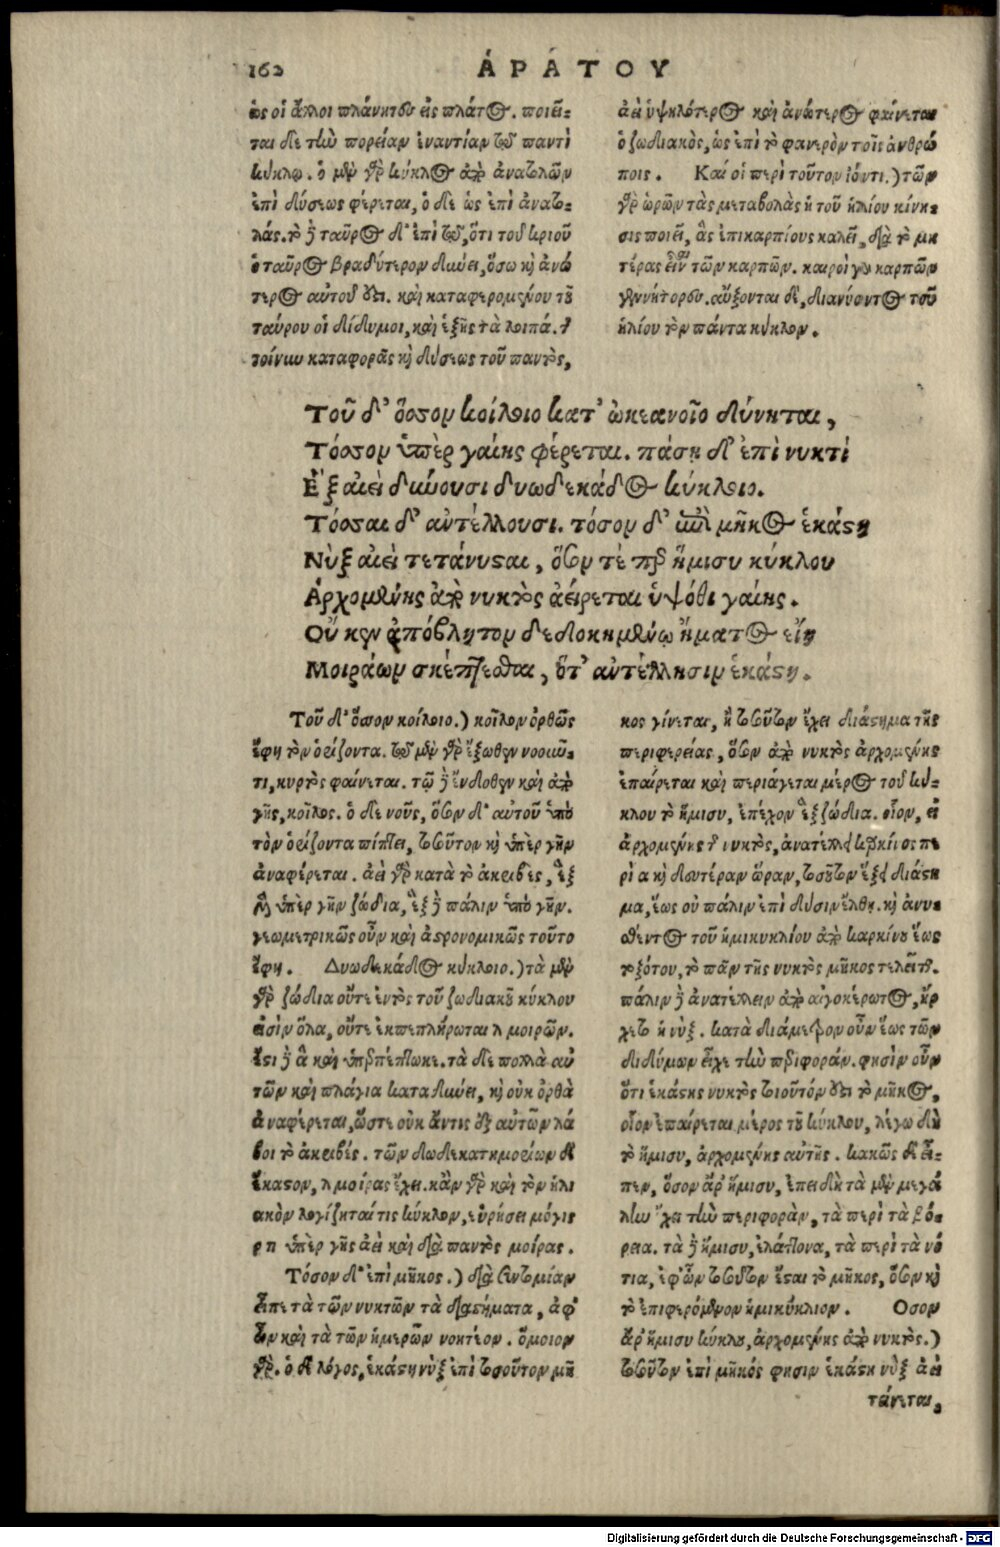 162
ἈΡΆΤΟΥ
ὡς οἱ ἄλλοι πλάνητου εἰς πλάτος. ποιεῖ-
ται δὲ τὴν πορείαν ἐναντίαν τῷ παντὶ
κύκλῳ. ὁ μὲν γὰρ κύκλος ἀπὸ ἀναβολῶν
ἐπὶ δύσεως φέρεται, ὁ δὲ ὡς ἐπὶ ἀναβο-
λάς. τὸ δὲ ταῦρος δ' ἐπὶ τῷ, ὅτι τοῦ κριοῦ
ὁ ταῦρος βραδύτερον δύνει, ὅσῳ καὶ ἀνώ
τερος αὐτοῦ ὅτι. καὶ καταφερομένου τοῦ
ταύρου οἱ δίδυμοι, καὶ ἑξῆς τὰ λοιπά.
τοίνυν καταφορᾶς καὶ δύσεως τοῦ παντὸς,
ἀεὶ ὑψηλότερος καὶ ἀνώτερος φαίνεται
ὁ ζωδιακὸς, ὡς ἐπὶ τὸ φανερὸν τοῖς ἀνθρώ
ποις. Καί οἱ περὶ τοῦτον ἰόντι.) τῶν
γὰρ ὡρῶν τὰς μεταβολὰς ἡ τοῦ ἡλίου κίνη-
σις ποιεῖ, ἃς ἐπικαρπίους καλεῖ, διὰ τὸ μη
τέρας εἶναι τῶν καρπῶν. καιροὶ γὰρ καρπῶν
γεννήτορες. αὔξονται δὲ, διανύοντος τοῦ
ἡλίου τὸν πάντα κύκλον.
Τοῦ δ' ὅσσον κοίλοιο κατ' ὠκεανοῖο δύνηται,
Τόσσον ὑπὲρ γαίης φέρεται. πάσῃ δ' ἐπὶ νυκτὶ
Ἓξ αἰεὶ δύνουσι δυωδεκάδος κύκλοιο.
Τόσσαι δ' αὐτέλλουσι. τόσον δ' ἐπὶ μῆκος ἑκάστη
Νὺξ αἰεὶ τετάνυσται, ὅσον τὲ περ ἥμισυ κύκλου
Ἀρχομένης ἀπὸ νυκτὸς ἀείρεται ὑψόθι γαίης.
Οὔ κεν ἀπόβλητον δεδοκημένῳ ἤματος εἴη
Μοιράων σκέπτεσθαι, ὅτ' αὐτέλλησιν ἑκάστη.
Τοῦ δ' ὅσσον κοίλοιο.) κοῖλον ὀρθῶς
ἔφη τὸν ὁρίζοντα. τῷ μὲν γὰρ ἔξωθεν νοοιῶ-
τι, κυρτὸς φαίνεται. τῷ δὲ ἔνδοθεν καὶ ἀπὸ
γῆς, κοῖλος. ὁ δὲ νοῦς, ὅσον δ' αὐτοῦ ὑπὸ
τὸν ὁρίζοντα πίπτει, τοσοῦτον καὶ ὑπὲρ γῆν
ἀναφέρεται. ἀεὶ γὰρ κατὰ τὸ ἀκριβὲς, ἓξ
μὲν ὑπὲρ γῆν ζώδια, ἓξ δὲ πάλιν ὑπὸ γῆν.
γεωμετρικῶς οὖν καὶ ἀστρονομικῶς τοῦτο
ἔφη. Δυωδεκάδος κύκλοιο.) τὰ μὲν
γὰρ ζώδια οὔτε ἐντὸς τοῦ ζωδιακοῦ κύκλου
εἰσὶν ὅλα, οὔτε ἐκπεπλήρωται λ μοιρῶν.
ἔστι δὲ ἃ καὶ ὑπερπέπτωκε. τὰ δὲ πολλὰ αὐ
τῶν καὶ πλάγια καταδύνει, καὶ οὐκ ὀρθὰ
ἀναφέρεται, ὥστε οὐκ ἄντις ἐξ αὐτῶν λά
βοι τὸ ἀκριβές. τῶν δωδεκατημορίων δὲ
ἕκαστον, λ μοίρας ἔχει. κἂν γὰρ καὶ τὸν ἡλι
ακὸν λογίζηταί τις κύκλον, εὑρήσει μόγις
ρπ ὑπὲρ γῆς ἀεὶ καὶ διὰ παντὸς μοίρας.
Τόσον δ' ἐπὶ μῆκος.) διὰ συντομίαν
εἶπε τὰ τῶν νυκτῶν τὰ διαστήματα, ἀφ'
ὧν καὶ τὰ τῶν ἡμερῶν νοητέον. ὅμοιον
γὰρ. ὁ δὲ λόγος, ἑκάστη νὺξ ἐπὶ τοσοῦτον μῆ
κος γίνεται, ἢ τοσοῦτον ἔχει διάστημα τῆς
περιφερείας, ὅσον ἀπὸ νυκτὸς ἀρχομένης
ἐπαίρεται καὶ περιάγεται μέρος τοῦ κύ-
κλου τὸ ἥμισυ, ἐπέχον ἓξ ζώδια. οἷον, εἰ
ἀρχομένης τῆς νυκτὸς, ἀνατέλλει καρκίνος πε
ρὶ α καὶ δευτέραν ὥραν, τοσοῦτον ἕξει διάστη
μα, ἕως οὗ πάλιν ἐπὶ δύσιν ἔλθῃ. καὶ ἀνυ-
σθέντος τοῦ ἡμικυκλίου ἀπὸ καρκίνου ἕως
τοξότου, τὸ πᾶν τῆς νυκτὸς μῆκος τελεῖται.
πάλιν δὲ ἀνατέλλειν ἀπὸ αἰγοκέρωτος, ἤρ
χετο ἡ νύξ. κατὰ διάμετρον οὖν ἕως τῶν
διδύμων εἶχε τὴν περιφοράν. φησὶν οὖν
ὅτι ἑκάστης νυκτὸς τοιοῦτόν ἐστι τὸ μῆκος,
οἷον ἐπαίρεται μέρος τοῦ κύκλου, λέγω δὴ
τὸ ἥμισυ, ἀρχομένης αὐτῆς. κακῶς δὲ εἶ-
πεν, ὅσον ἄρ' ἥμισυ, ἐπειδὴ τὰ μὲν μεγά
λην ἔχει τὴν περιφορὰν, τὰ περὶ τὰ βό-
ρεια. τὰ δὲ ἥμισυ, ἐλάττονα, τὰ περὶ τὰ νό
τια, ἐφ' ὧν τοσοῦτον ἔσται τὸ μῆκος, ὅσον καὶ
τὸ ἐπιφερόμενον ἡμικύκλιον. Οσον
ἄρ' ἥμισυ κύκλου, ἀρχομένης ἀπὸ νυκτὸς.)
τοσοῦτον ἐπὶ μῆκός φησιν ἑκάστη νὺξ ἀεὶ
τάνεται,
Digitalisierung gefördert durch die Deutsche Forschungsgemeinschaft - DFG